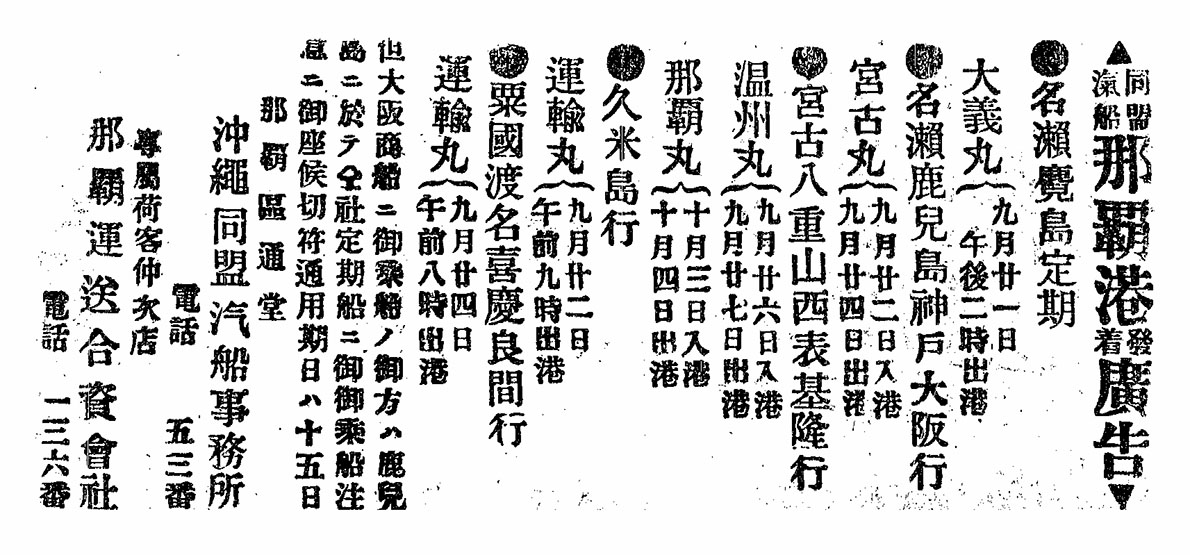 ▲同盟汽船那覇港發着廣告▼
●名瀬麑島定期
大義丸｛九月廿一日
午後二時出港
●名瀬鹿兒島神戸大阪行
宮古丸｛九月廿二日入港
九月廿四日出港
●宮古八重山西表基隆行
温州丸｛九月廿六日入港
九月廿七日出港
那覇丸｛十月三日入港
十月四日出港
●久米島行
運輸丸｛九月廿二日
午前九時出港
●粟國渡名喜慶良間行
運輸丸｛九月廿四日
午前八時出港
但大阪商船ニ御乘船ノ御方ハ鹿兒
島ニ於テ仝社定期船ニ御御乘船注
意ニ御座候切符通用期日ハ十五日
那覇區通堂
沖繩同盟汽船事務所
電話 五三番
專屬荷客仲次店
那覇運送合資會社
電話 一三六番